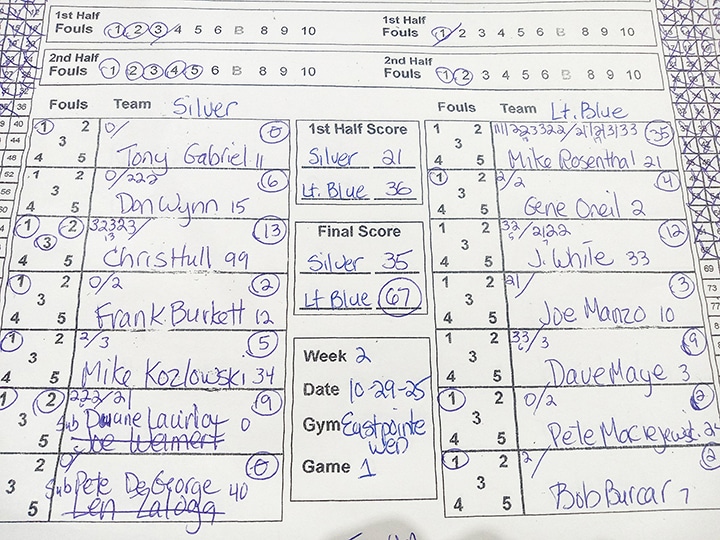 1st Half
Fouls 1 2 3 4 5 6 B 8 9 10
1st Half
Fouls 1 2 3 4 5 6 B 8 9 10
2nd Half
Fouls 1 2 3 4 5 6 B 8 9 10
2nd Half
Fouls 1 2 3 4 5 6 B 8 9 10
Fouls Team Silver
1 2 3 4 5 0/ 0
Tony Gabriel 11
1 2 3 4 5 0/222 6
Don Wynn 15
1 2 3 4 5 32323/ 13 13
Chris Hull 99
1 2 3 4 5 0/2 2
Frank Burkett 12
1 2 3 4 5 2/3 5
Mike Kozlowski 34
1 2 3 5 222/21 9
Sub Duane 0
2 3 5 0/ 0
Sub Pete DeGeorge 40
Len Zaloga
1st Half Score
Silver 21
Lt. Blue 36
Final Score
Silver 35
Lt Blue 67
Week 2
Date 10-29-25
Gym Eastpointe
Wed
Game 1
Fouls Team Lt. Blue
1 2 3 4 5 35
Mike Rosenthal 21
1 2 3 4 5 2/2 4
Gene Oneil 2
1 2 3 4 5 32/2122 12
J. White 33
1 2 3 4 5 21/ 3
Joe Manzo 10
1 2 3 4 5 33/3 6 9
Dave Maye 3
1 2 3 4 5 0/2 2
Pete
1 2 3 4 5 2/ 2
Bob Burcar 7